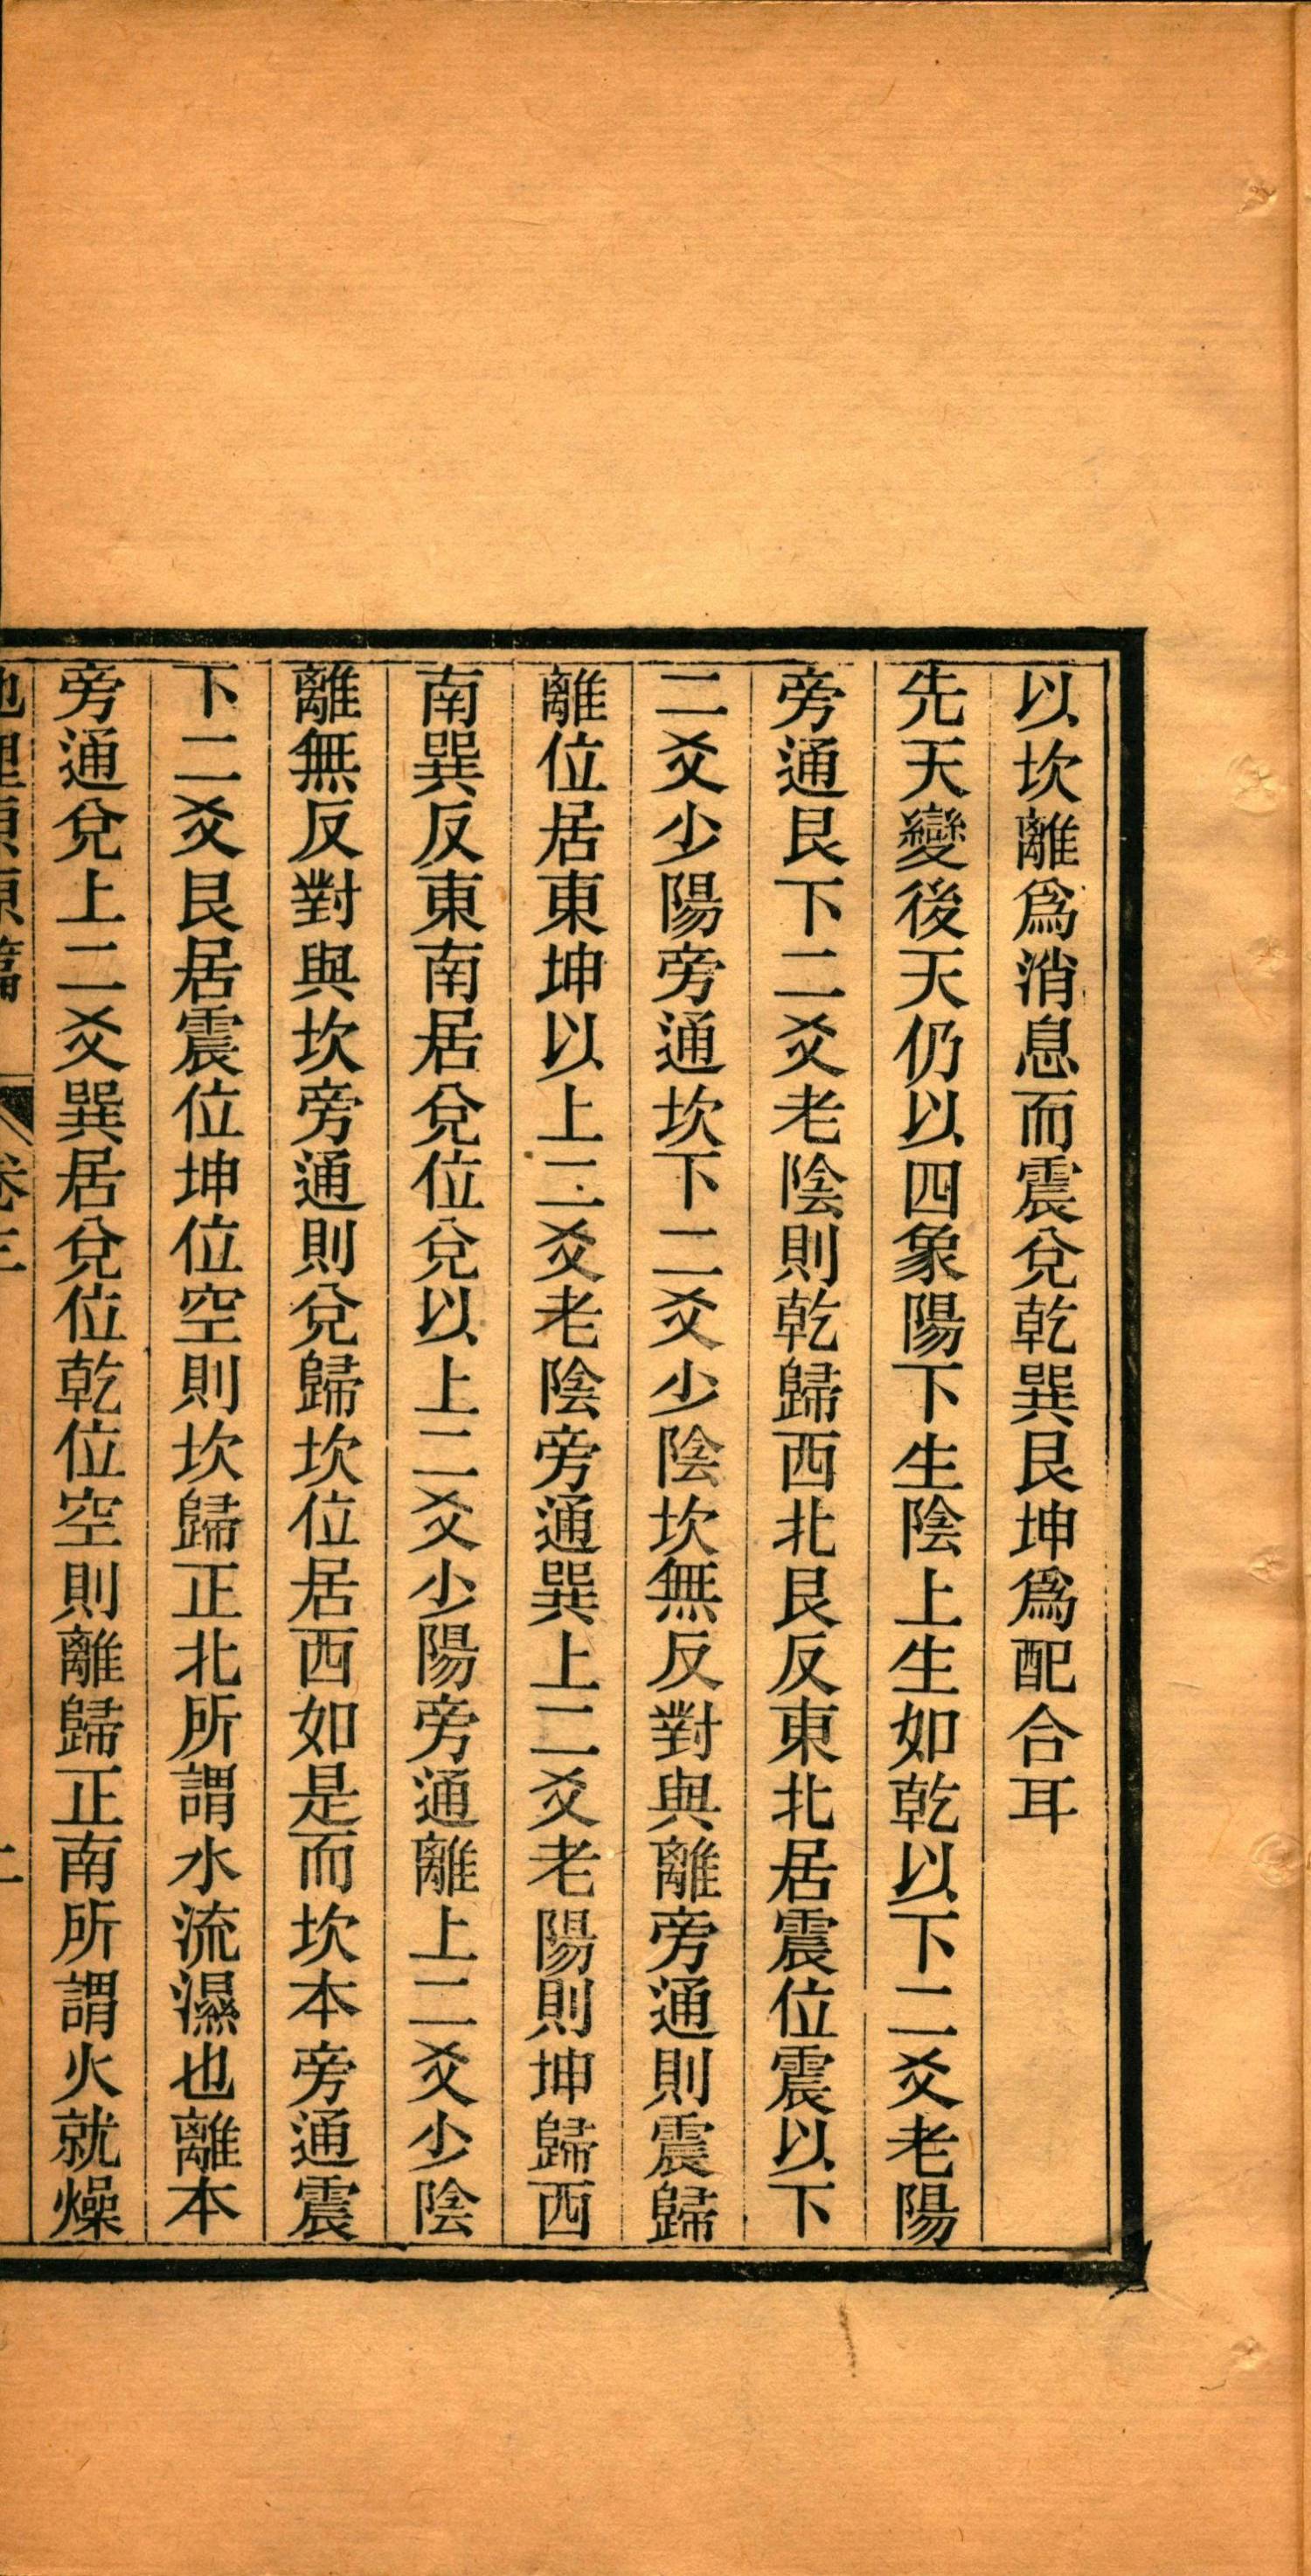 以坎離爲消息而震兌乾巽艮坤爲配合耳
先天變後天仍以四象陽下生陰上生如乾以下二爻老陽
旁通艮下二爻老陰則乾歸西北艮反東北居震位震以下
二爻少陽旁通坎下二爻少陰坎無反對與離旁通則震歸
離位居東坤以上二爻老陰旁通巽上二爻老陽則坤歸西
南巽反東南居兌位兌以上二爻少陽旁通離上二爻少陰
離無反對與坎旁通則兌歸坎位居西如是而坎本旁通震
下二爻艮居震位坤位空則坎歸正北所謂水流濕也離本
旁通兌上二爻巽居兌位乾位空則離歸正南所謂火就燥